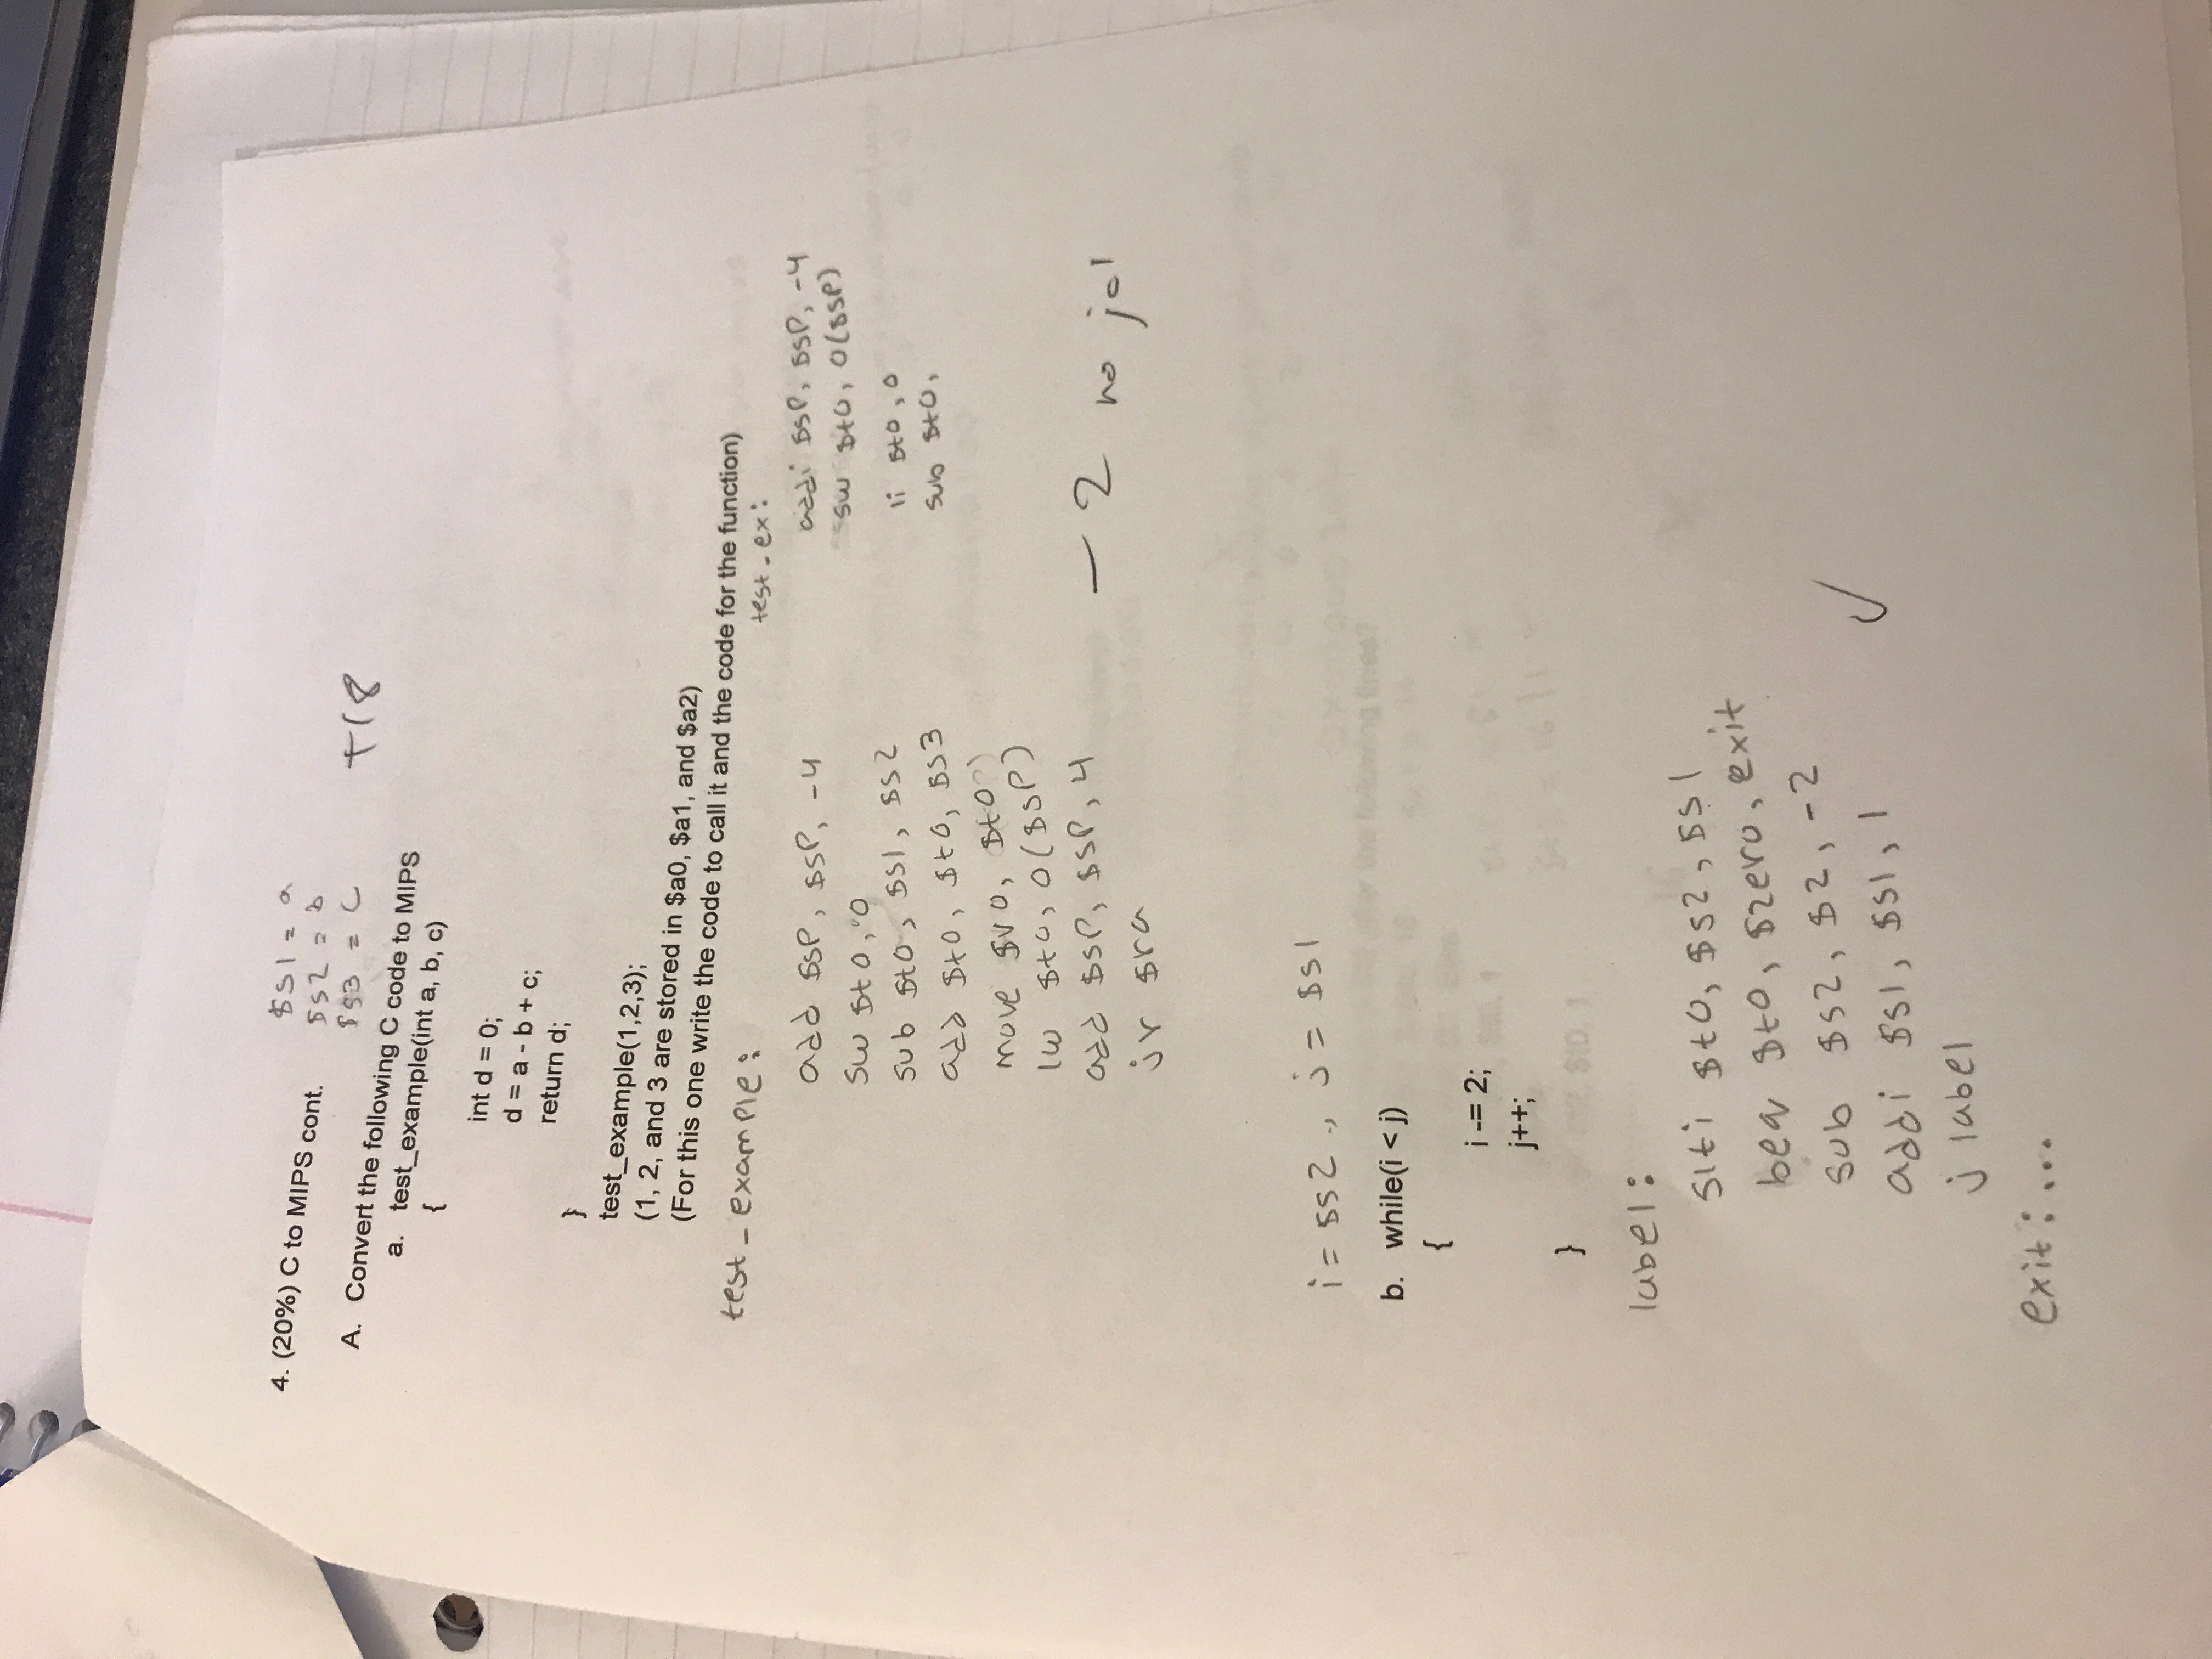 4. (20%) C to MIPS cont.
$s1 = a
$s2 = b
$s3 = c
+18
A. Convert the following C code to MIPS
a. test_example(int a, b, c)
{
int d = 0;
d = a - b + c;
return d;
}
test_example(1,2,3);
(1, 2, and 3 are stored in $a0, $a1, and $a2)
(For this one write the code to call it and the code for the function)
test_example:
add $sp, $sp, -4
sw $t0, 0
sub $t0, $s1, $s2
add $t0, $t0, $s3
move $v0, $t0
lw $t0, 0($sp)
add $sp, $sp, 4
jr $ra
test_ex:
addi $sp, $sp, -4
sw $t0, 0($sp)
li $t0, 0
sub $t0,
- 2 no jal
i = $s2, j = $s1
b. while(i < j)
{
i -= 2;
j++;
}
label:
slti $t0, $s2, $s1
beq $t0, $zero, exit
sub $s2, $2, -2
addi $s1, $s1, 1
j label
exit: ...